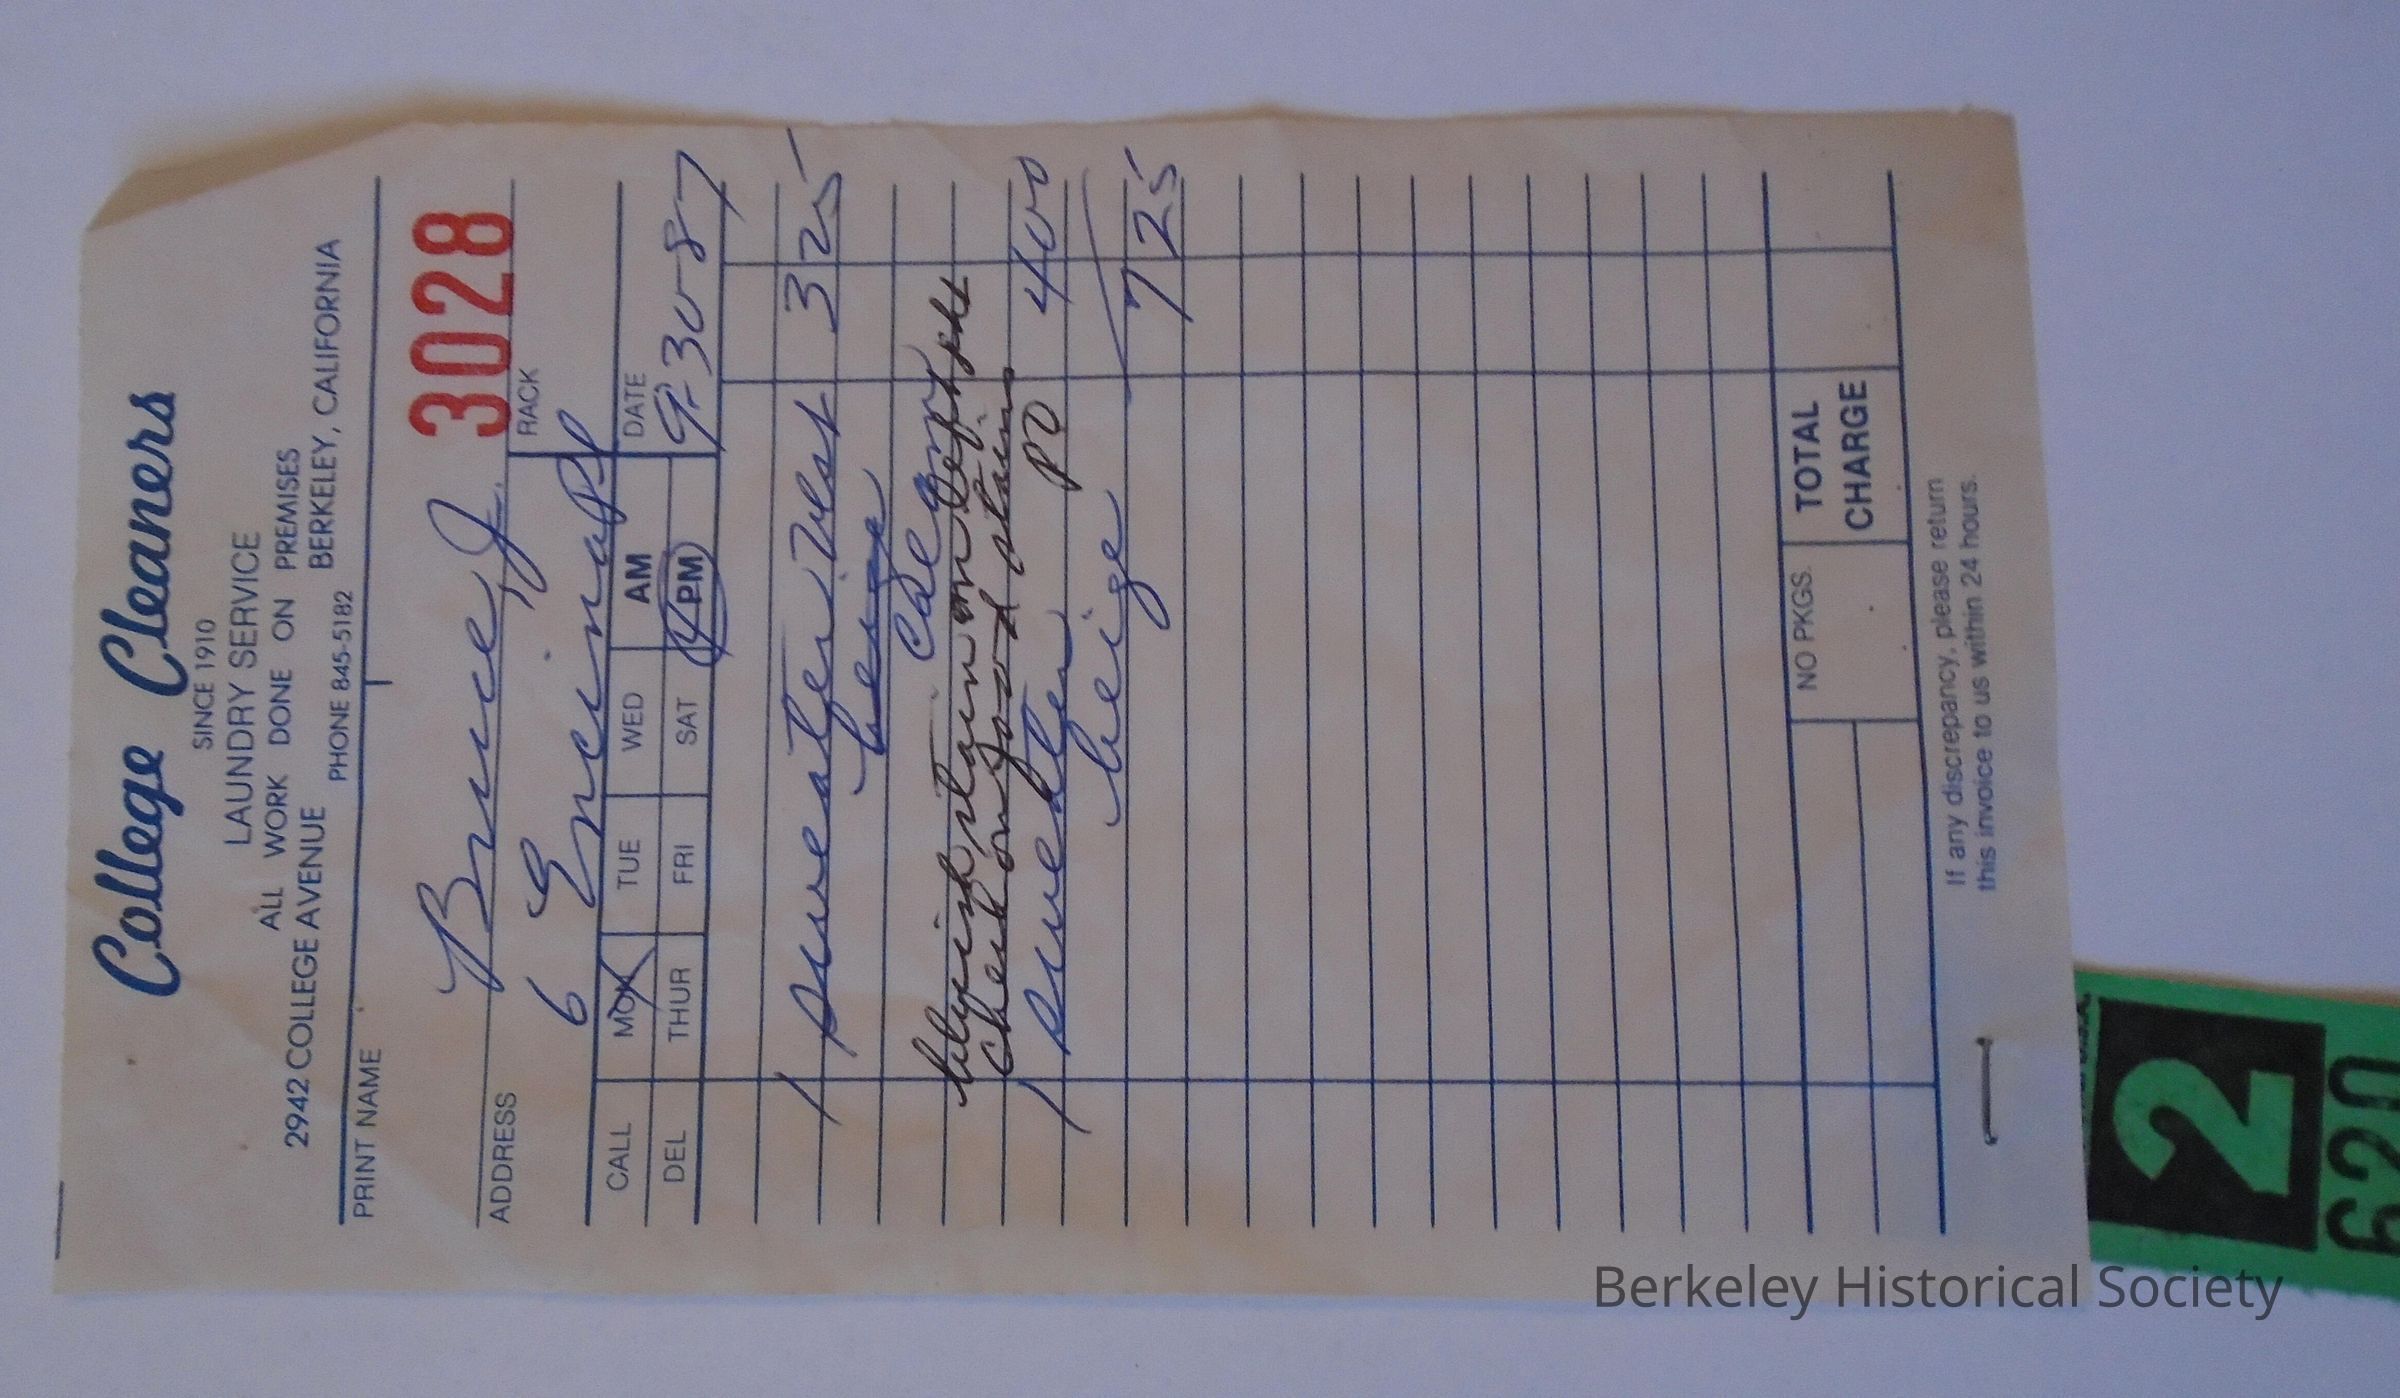 College Cleaners
SINCE 1910
LAUNDRY SERVICE
ALL WORK DONE ON PREMISES
2942 COLLEGE AVENUE BERKELEY, CALIFORNIA
PHONE 845-5182
PRINT NAME
3028
Bruce J.
ADDRESS RACK
6 Encina Pl
CALL MON TUE WED AM DATE
DEL THUR FRI SAT PM 9-30-87
1 Sweater Vest 3 25
beige
stain on left
Check on stains
1 Sweater PD 4 00
beige
7 25
NO PKGS. TOTAL CHARGE
If any discrepancy, please return
this invoice to us within 24 hours.
2
620
Berkeley Historical Society